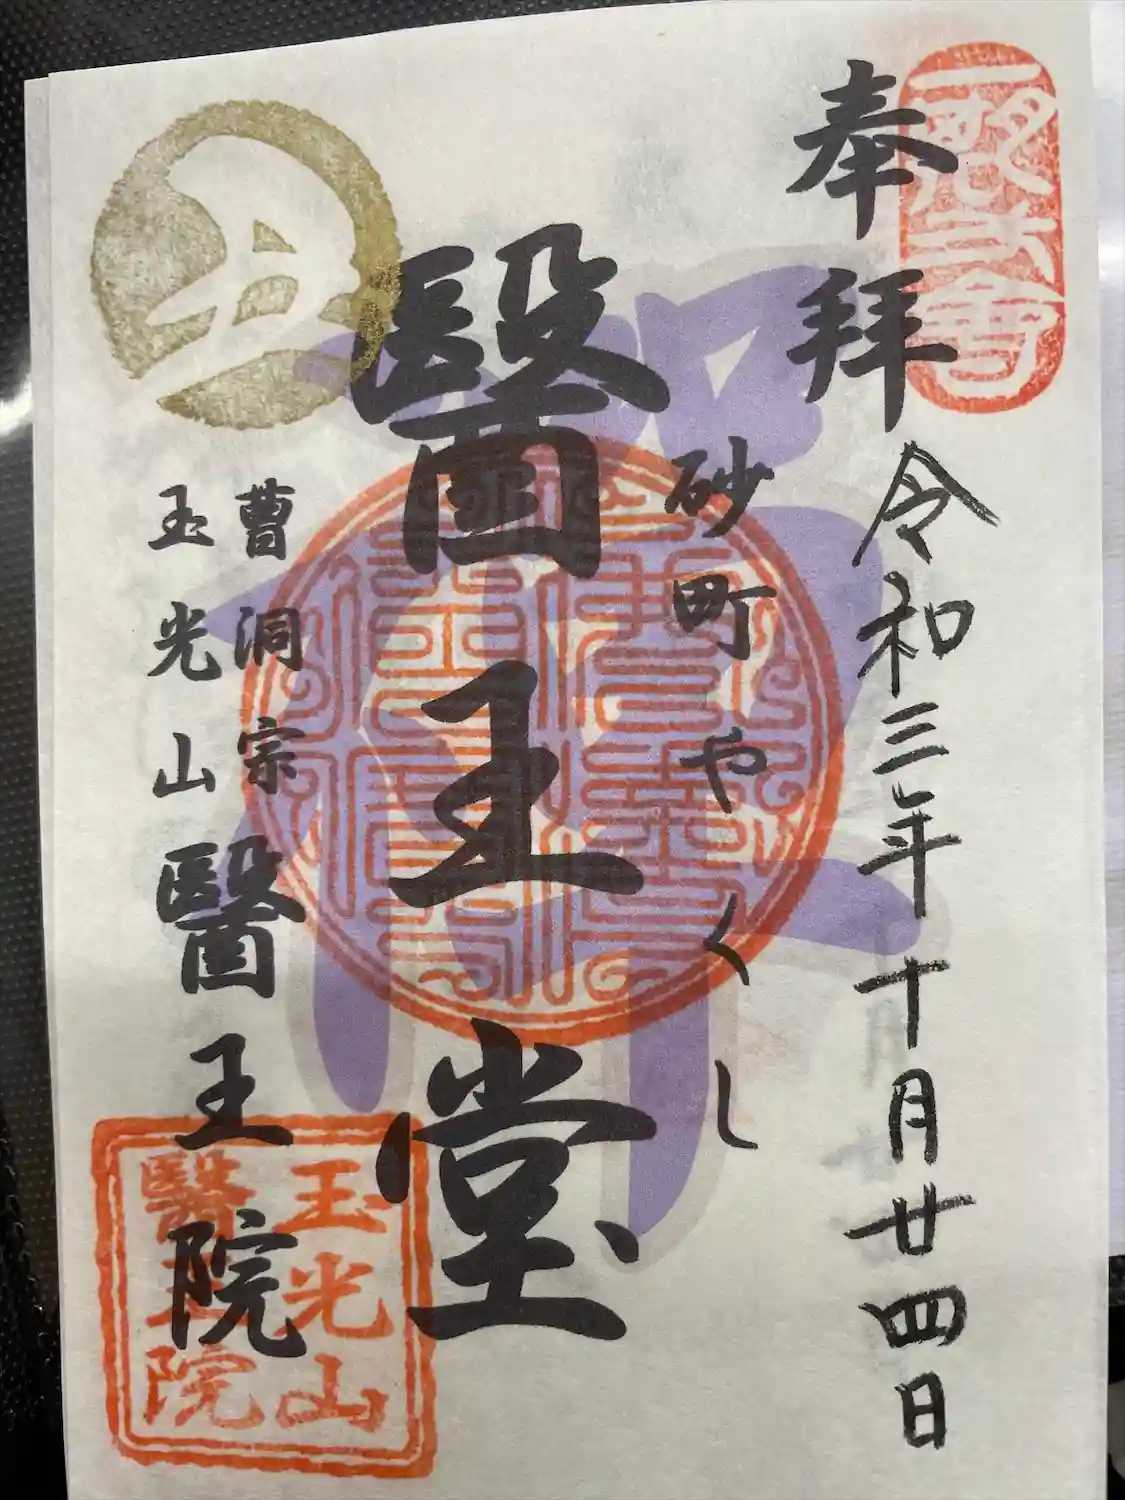 奉拝
令和三年十月廿四日
砂町やくし
醫王堂
禅
丑
曹洞宗
玉光山醫王院
玉光山
醫王院